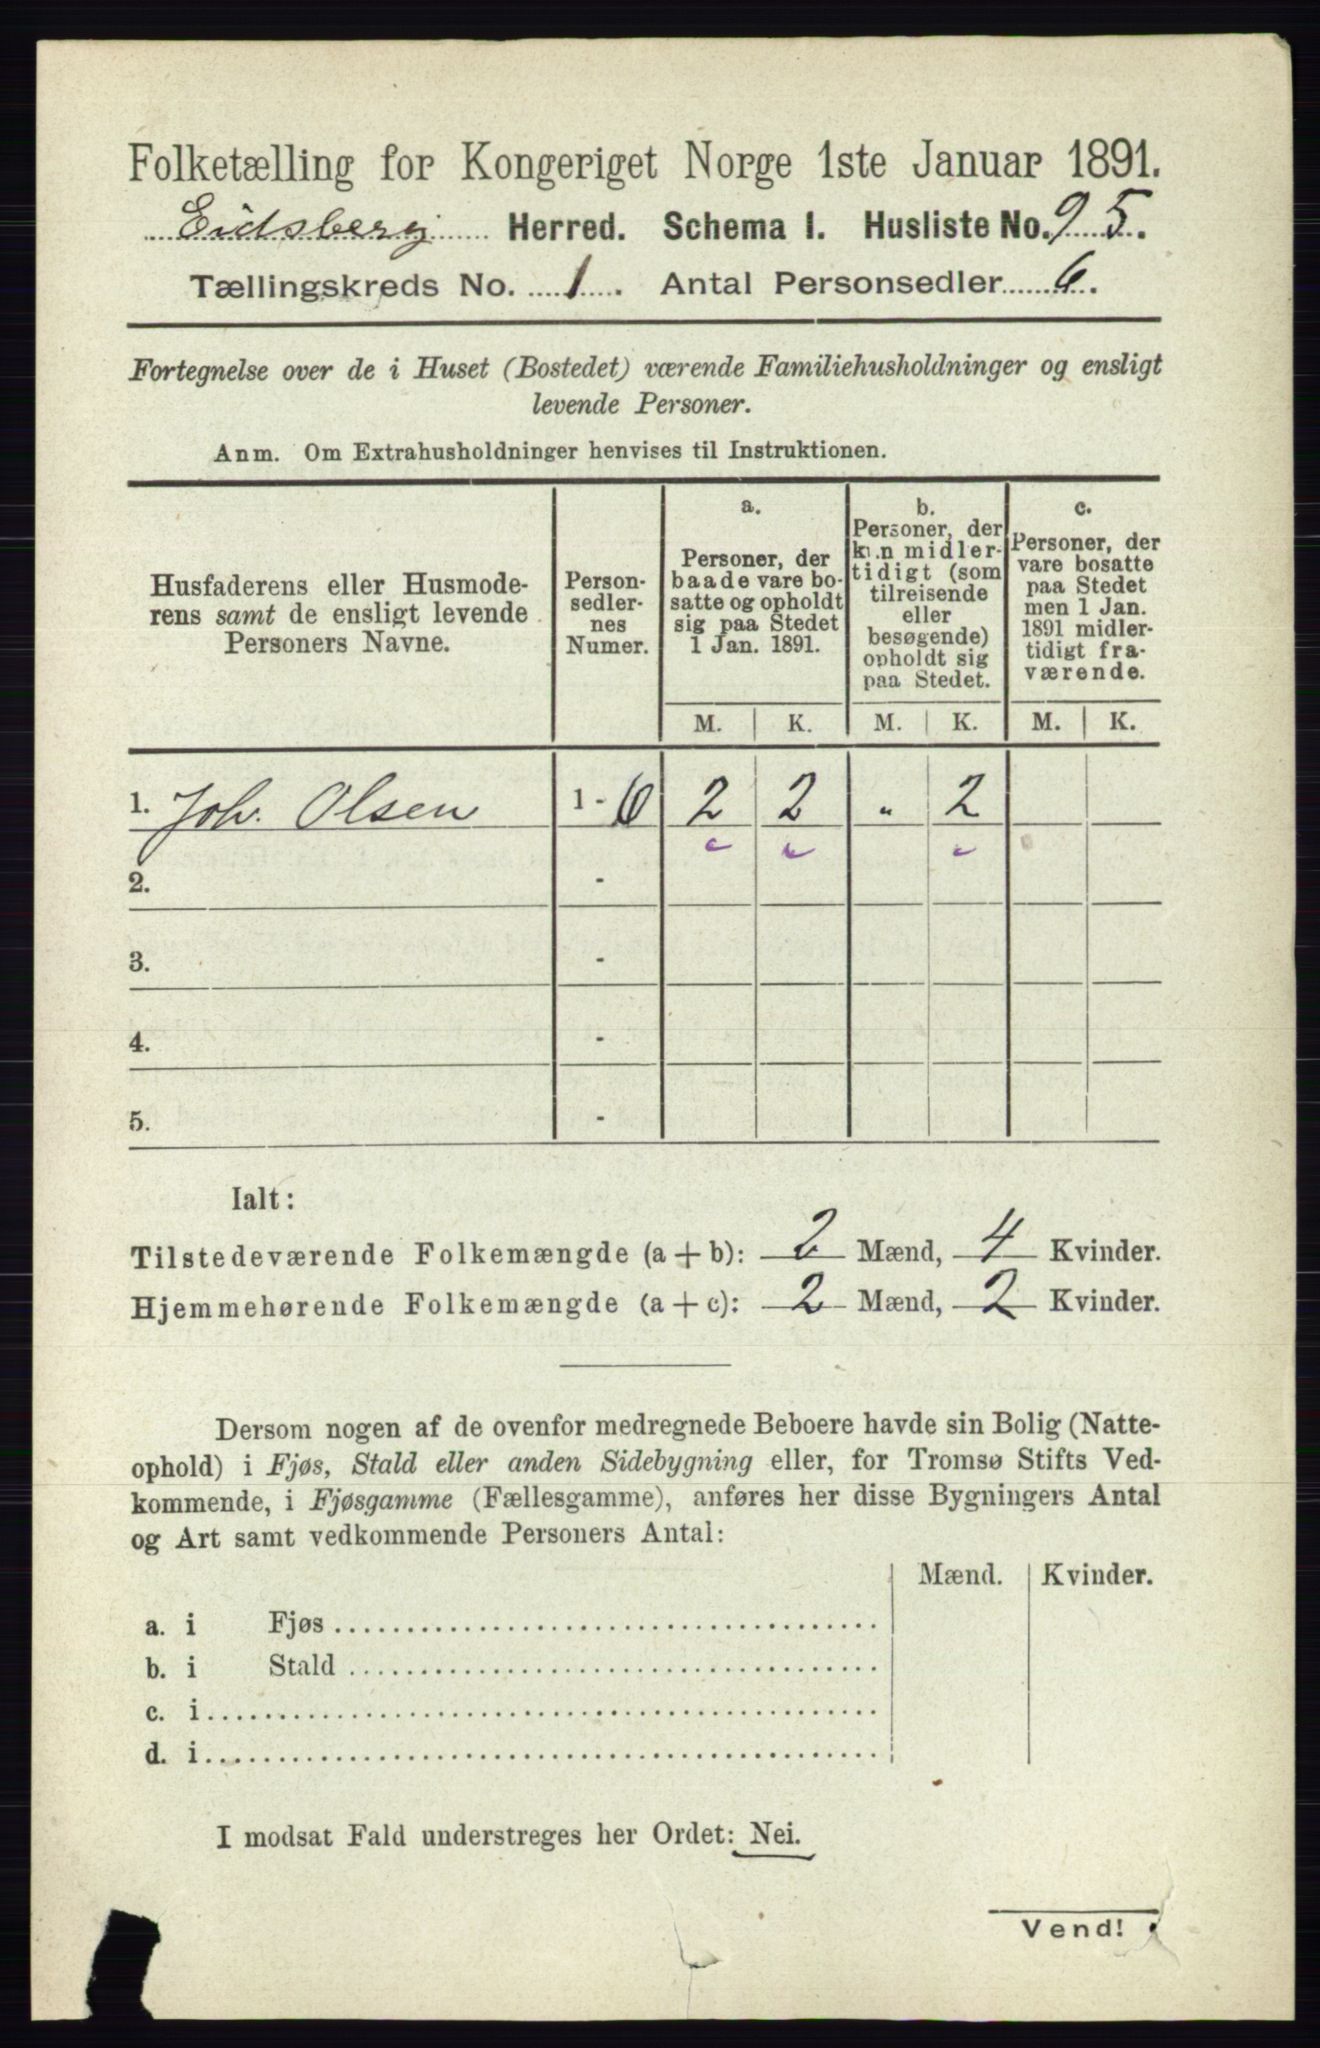 Folketælling for Kongeriget Norge 1ste Januar 1891.
Eidsberg Herred. Schema I. Husliste No. 95.
Tællingskreds No. 1. Antal Personsedler 6.
Fortegnelse over de i Huset (Bostedet) værende Familiehusholdninger og ensligt
levende Personer.
Anm. Om Extrahusholdninger henvises til Instruktionen.
Husfaderens eller Husmode-
rens samt de ensligt levende
Personers Navne.
Person-
sedler-
nes
Numer.
a.
Personer, der
baade vare bo-
satte og opholdt
sig paa Stedet
1 Jan. 1891.
b.
Personer, der
kun midler-
tidigt (som
tilreisende
eller
besøgende)
opholdt sig
paa Stedet.
c.
Personer, der
vare bosatte
paa Stedet
men 1 Jan.
1891 midler-
tidigt fra-
værende.
M. K. M. K. M. K.
1. Joh. Olsen 1 - 6 2 2 " 2
2. -
3. -
4. -
5. -
Ialt:
Tilstedeværende Folkemængde (a + b): 2 Mænd, 4 Kvinder.
Hjemmehørende Folkemængde (a + c): 2 Mænd, 2 Kvinder.
Dersom nogen af de ovenfor medregnede Beboere havde sin Bolig (Natte-
ophold) i Fjøs, Stald eller anden Sidebygning eller, for Tromsø Stifts Ved-
kommende, i Fjøsgamme (Fællesgamme), anføres her disse Bygningers Antal
og Art samt vedkommende Personers Antal:
Mænd. Kvinder.
a. i Fjøs
b. i Stald
c. i
d. i
I modsat Fald understreges her Ordet: Nei.
Vend!